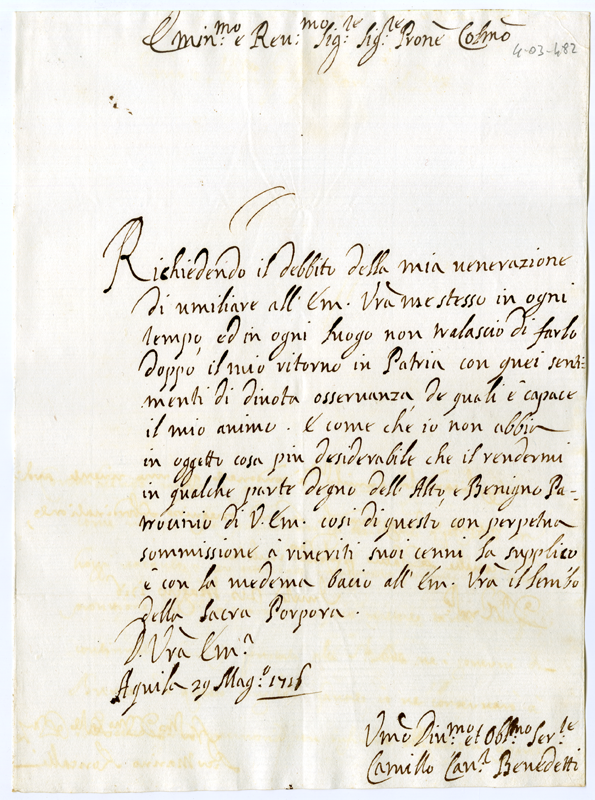 Emin.mo e Reu.mo Sig.re Sig.re Pronẽ Colmõ
4-03-482
Richiedendo il debbito della mia uenerazione
di umiliare all' Em. Vrã me stesso in ogni
tempo, ed in ogni luogo non tralascio di farlo
doppo il mio ritorno in Patria con quei senti=
menti di diuota osseruanza, de quali è capace
il mio animo. E come che io non abbia
in oggetto cosa piu desiderabile che il rendermi
in qualche parte degno dell' Alto, e Benigno Pa=
trocinio di V. Em. cosi di questo, con perpetua
sommissione a riueriti suoi cenni la supplico
è con la medema bacio all' Em. Vrã il lembo
della Sacra Porpora.
D. Vrã Em.a
Aquila 29 Mag.o 1716
Vmõ Diu.mo et Obl.mo Ser.re
Camillo Cau.r Benedetti